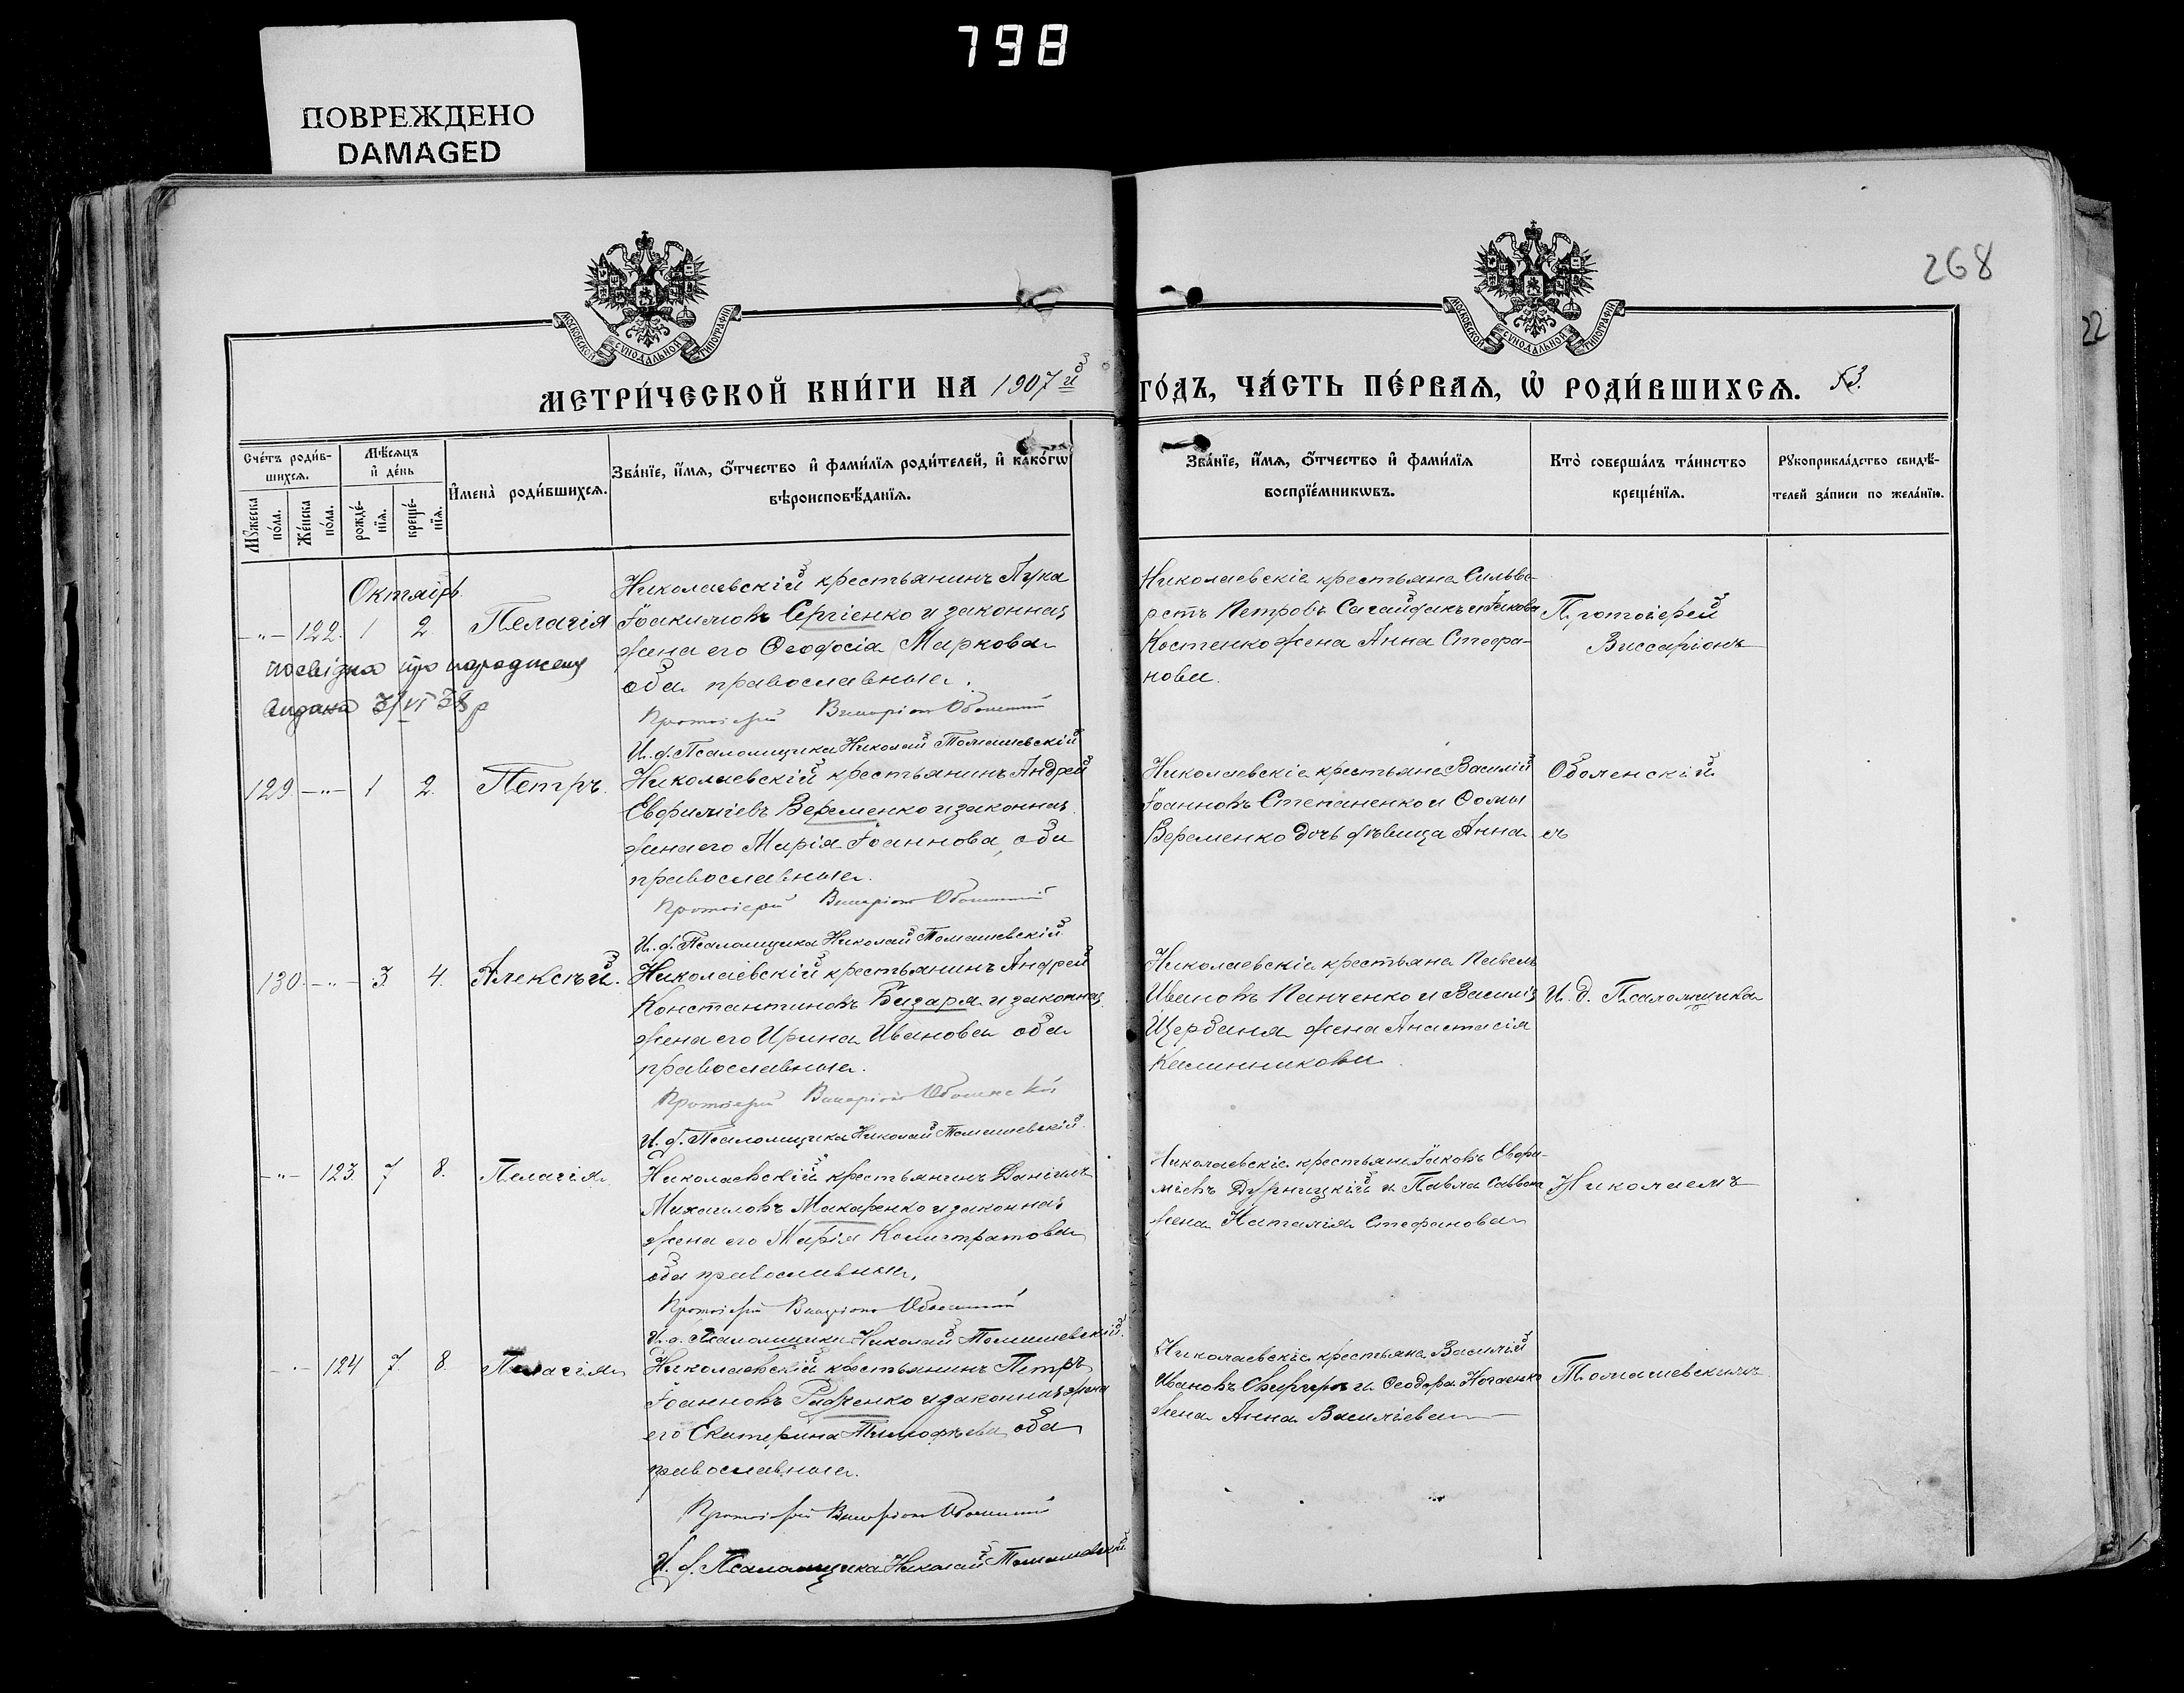 798
ПОВРЕЖДЕНО
DAMAGED
268
22
МОСКОВСКОЙ СУНОДАЛЬНОЙ ТИПОГРАФІИ
МОСКОВСКОЙ СУНОДАЛЬНОЙ ТИПОГРАФІИ
МЕТРИ́ЧЕСКОЙ КНИ́ГИ НА 1907й ГО́ДЪ, ЧА́СТЬ ПЕ́РВАѦ, Ѡ҆ РОДИ́ВШИХСѦ.
Сче́тъ роди́в-
шихсѧ.
Мꙋжеска по́ла.
Же́нска по́ла.
Мѣ́сѧцъ и҆ де́нь
рожде́-нїѧ.
креще́-нїѧ.
И҆мена̀ роди́вшихсѧ.
Зва́нїе, и҆́мѧ, ѻ҆́тчество и҆ фами́лїѧ роди́телей, и҆ како́гѡ
вѣроисповѣ́данїѧ.
Зва́нїе, и҆́мѧ, ѻ҆́тчество и҆ фами́лїѧ
воспрїе́мникѡвъ.
Кто̀ соверша́лъ та́инство
креще́нїѧ.
Рꙋкоприкла́дство свидѣ́-
телей за́писи по жела́нїю.
Октябрь
-"- 122. 1 2 Пелагія
Николаевскій крестьянинъ Лука
Іоакимовъ Сергіенко и законная
жена его Ѳеодосія Маркова
оба православные.
Протоіерей Виссаріонъ Оболенскій
И. д. Псаломщика Николай Томашевскій
посвідка про народження
видана 3/VI 38 р
Николаевскіе крестьяне Сильве-
рстъ Петровъ Сагайдакъ и Іакова
Костенко жена Анна Стефа-
нова.
Протоіерей
Виссаріонъ
129. -"- 1 2. Петръ.
Николаевскій крестьянинъ Андрей
Евфиміевъ Веременко и законная
жена его Марія Іоаннова, оба
православные.
Протоіерей Виссаріонъ Оболенскій
И. д. Псаломщика Николай Томашевскій
Николаевскіе крестьяне Василій
Іоанновъ Степаненко и Ѳомы
Веременко дочь дѣвица Анна
Оболенскій
съ
130. -"- 3. 4. Алексѣй.
Николаевскій крестьянинъ Андрей
Константиновъ Бизаря и законная
жена его Ирина Иванова оба
православные.
Протоіерей Виссаріонъ Оболенскій
И. д. Псаломщика Николай Томашевскій
Николаевскіе крестьяне Павелъ
Ивановъ Панченко и Василія
Щербаня жена Анастасія
Калинникова.
И. д. Псаломщика
-"- 123. 7 8. Пелагія.
Николаевскій крестьянинъ Даніилъ
Михаиловъ Макаренко и законная
жена его Марія Калистратова
оба православные.
Протоіерей Виссаріонъ Оболенскій
И. д. Псаломщика Николай Томашевскій
Николаевскіе крестьяне Іаковъ Евфи-
міевъ Дурницкій и Павла
жена Наталія Стефанова
Николаемъ
-"- 124 7. 8. Пелагія
Николаевскій крестьянинъ Петръ
Іоанновъ Рябченко и законная жена
его Екатерина Тимофѣева оба
православные.
Протоіерей Виссаріонъ Оболенскій
И. д. Псаломщика Николай Томашевскій
Николаевскіе крестьяне Василій
Ивановъ и Ѳеодора Ногаенко
жена Анна Василіева
Томашевскимъ